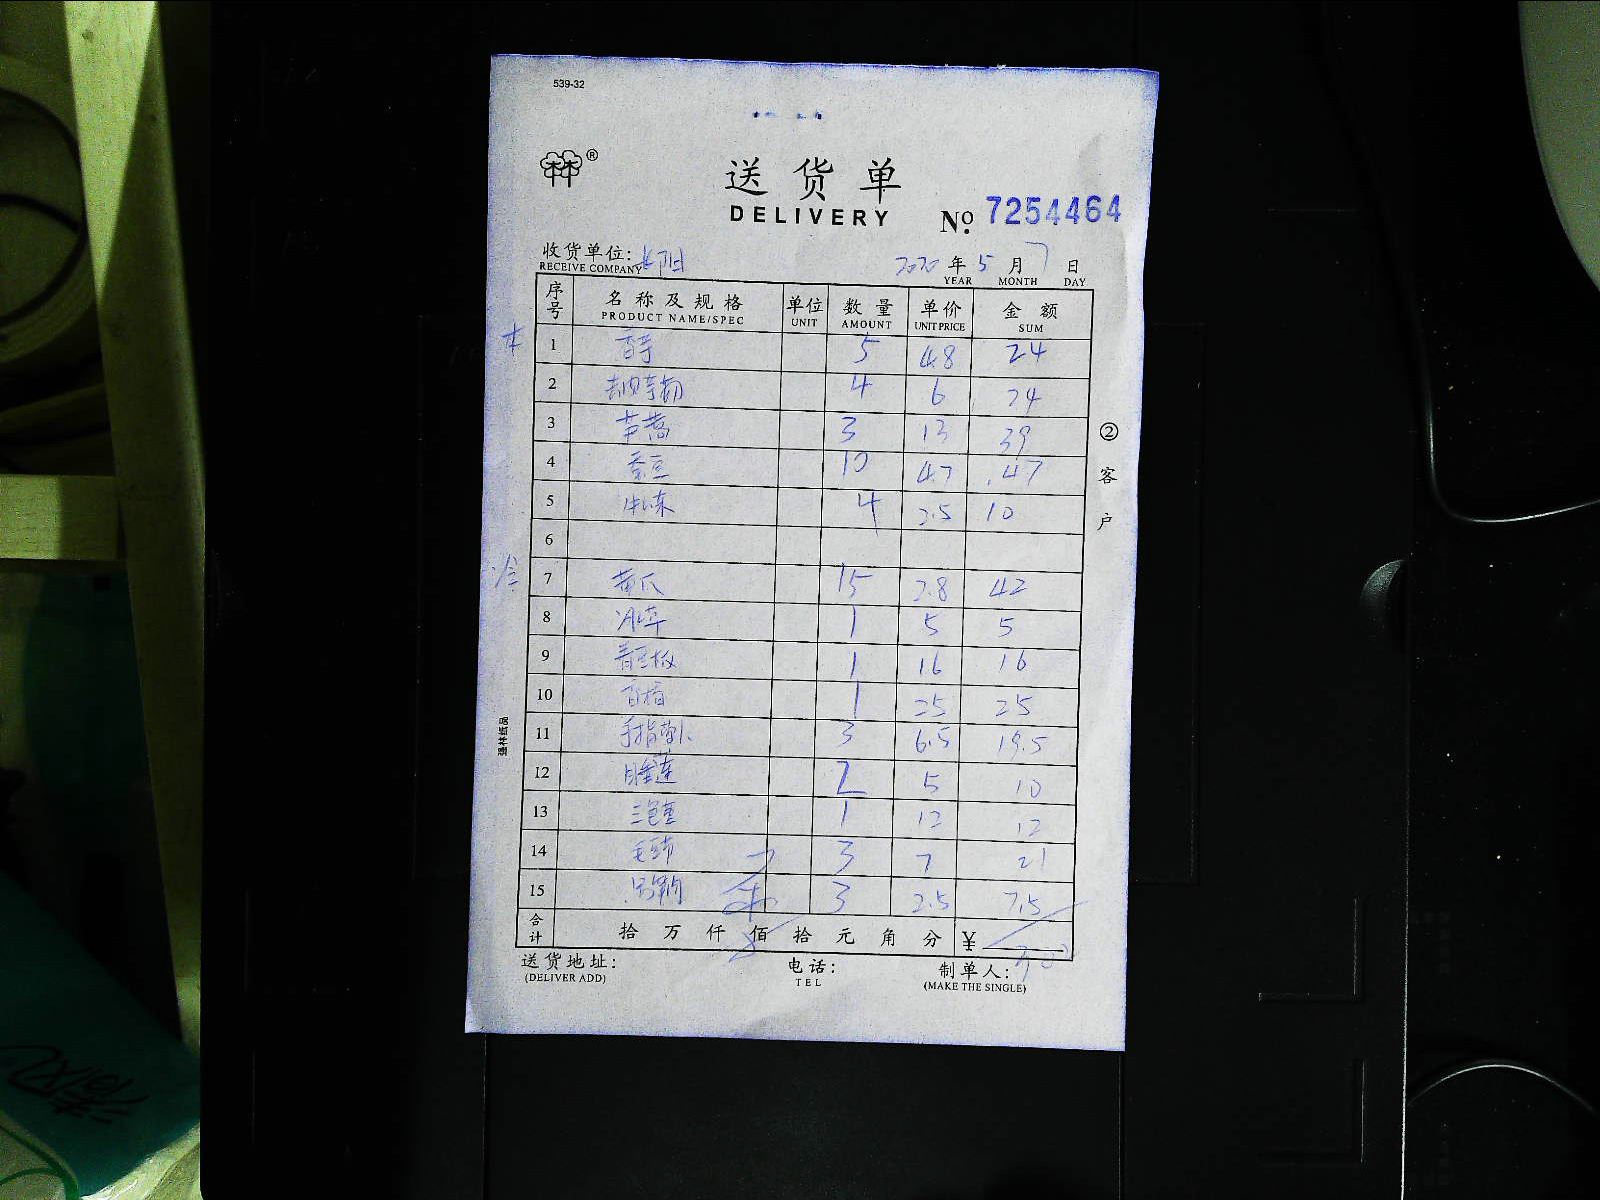 539-32
®
送货单
DELIVERY
№ 7254464
收货单位:
RECEIVE COMPANY
2020 年 5 月 7 日
YEAR MONTH DAY
序号 名称及规格 单位 数量 单价 金额
PRODUCT NAME/SPEC UNIT AMOUNT UNIT PRICE SUM
1 香芋 5 4.8 24
2 4 6 24
3 茼蒿 3 13 39
4 蚕豆 10 4.7 47
5 4 2.5 10
6
冷
7 黄瓜 15 2.8 42
8 1 5 5
9 青豆板 1 16 16
10 1 25 25
11 手指萝卜 3 6.5 19.5
12 睡莲 2 5 10
13 三色堇 1 12 12
14 毛豆节 3 7 21
15 3 2.5 7.5
合计 拾 万 仟 佰 拾 元 角 分 ¥
送货地址: 电话: 制单人:
(DELIVER ADD) TEL (MAKE THE SINGLE)
②客户
强林纸品